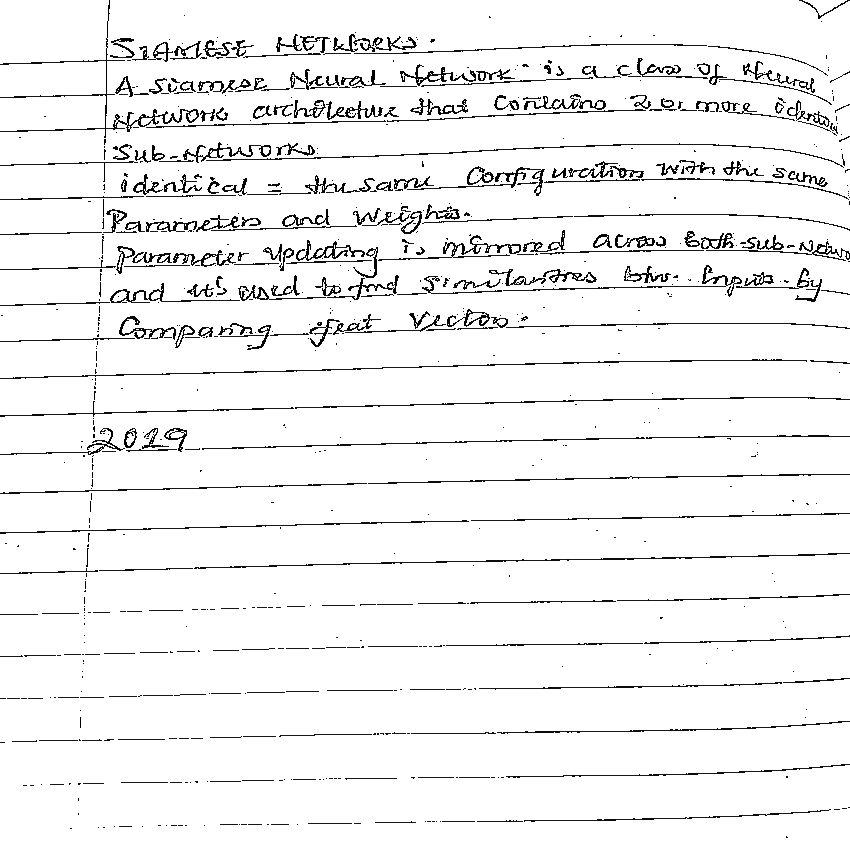 SIAMESE NETWORKS.
A Siamese Neural Network is a class of Neural
Network architecture that contains 2 or more
Sub-Networks
identical = the same Configuration with the same
Parameters and weights.
Parameter updating is mirrored across both sub-Netwo
and it's used to find similarities btw. Inputs by
Comparing feat vectors.
2019